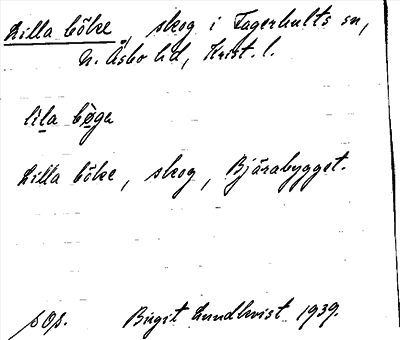 Lilla böke, skog i Fagerhults sn,
N. Åsbo hd, Krist. l.
lila bøga
Lilla böke, skog, Bjärabygget.
sOp. Birgit Lundkvist 1939.